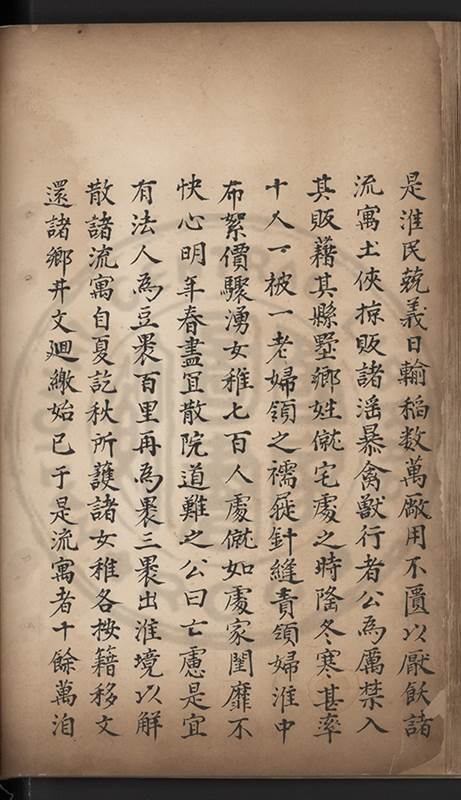 是淮民兢義日輸稲数萬廠用不匱以厭飫諸
流寓土俠掠販諸滛暴禽獸行者公為厲禁入
其販藉其縣墅鄉姓僦宅處之時隆冬寒甚率
十人一被一老婦領之襦屐針縫責領婦淮中
布絮價驟湧女稚七百人處僦如處家閨靡不
快心明年春盡冝散院道難之公曰亡慮是宜
有法人為豆褁百里再為褁三褁出淮境以解
散諸流寓自夏訖秋所護諸女稚各按籍移文
還諸鄉井文廻繳始已于是流寓者十餘萬洎